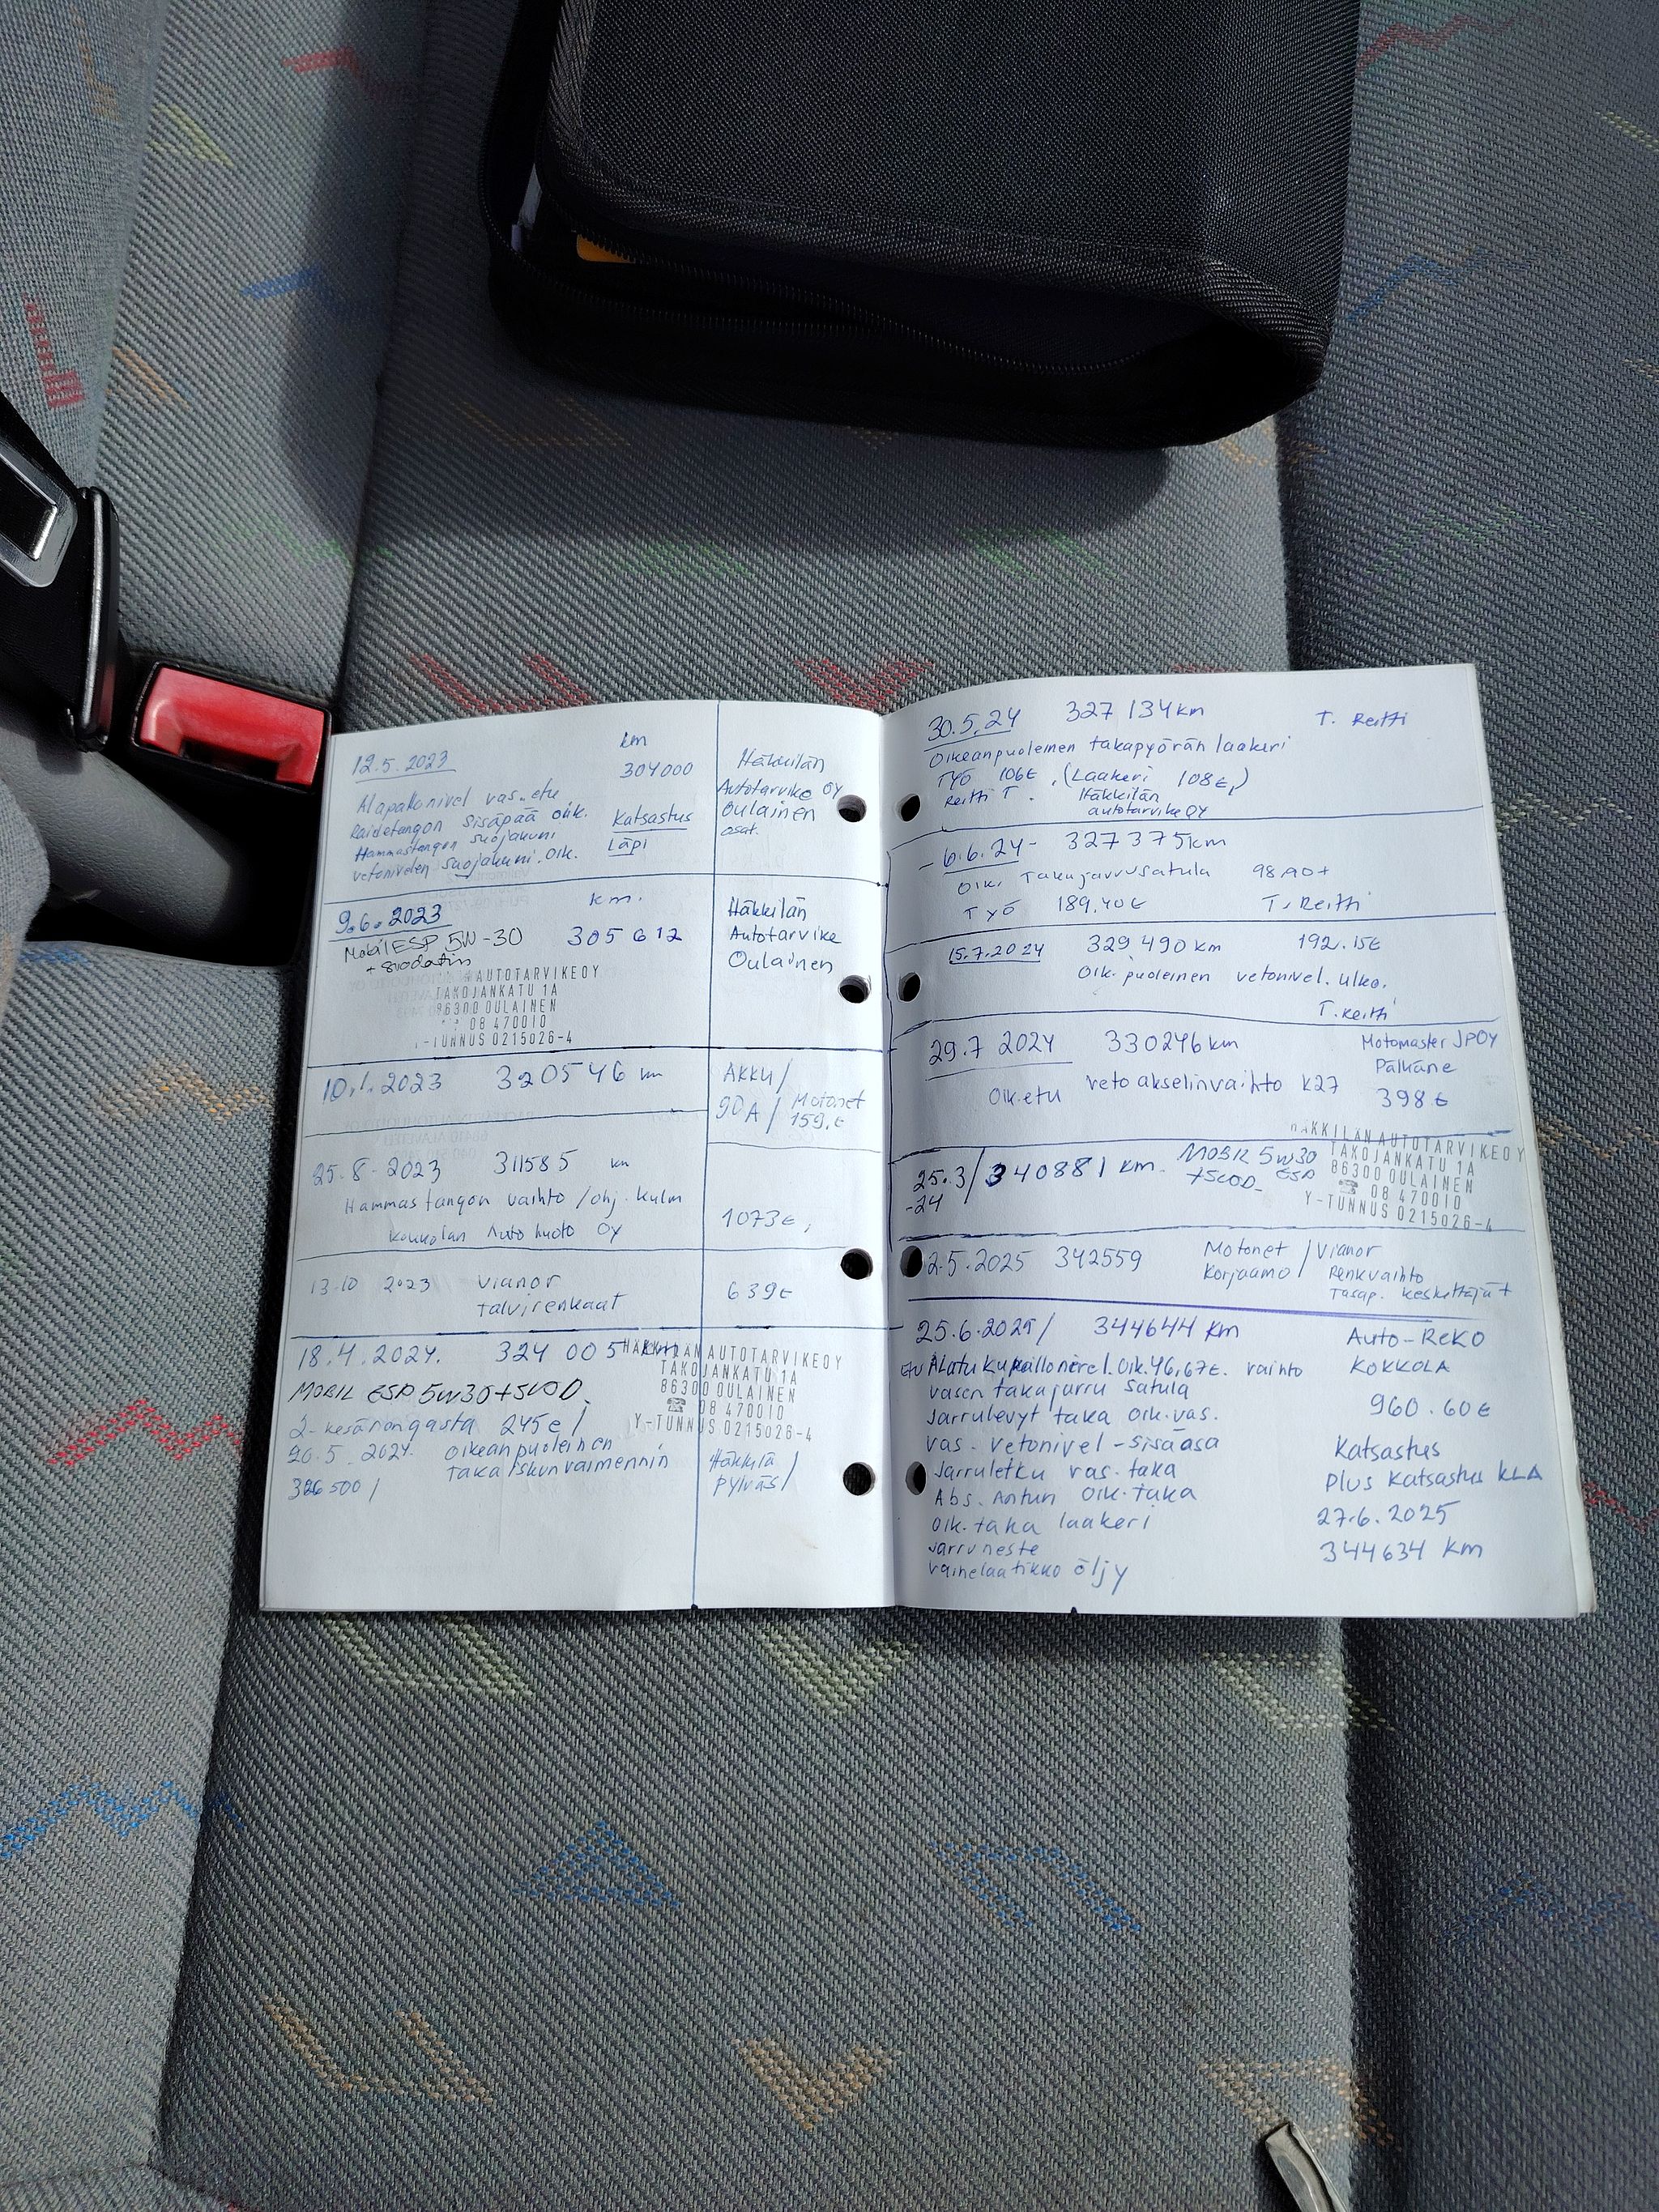 12.5.2023
km
304000
Alapallonivel vas. etu
Raidetangon sisäpää oik.
Hammastangon suojakumi
vetonivelen suojakumi. oik.
Katsastus
Läpi
Häkkilän
Autotarvike OY
Oulainen
osat.
9.6.2023
km.
Mobil ESP 5W-30
305612
+ suodatin
AUTOTARVIKE OY
TAKOJANKATU 1A
86300 OULAINEN
08 470010
-TUNNUS 0215026-4
Häkkilän
Autotarvike
Oulainen
10.1.2023 320546 km
AKKU/
90A / Motonet
159.€
25.8.2023 311585 km
Hammastangon vaihto / ohj. kulm
Kokkolan Autohuolto OY
1073€,
13.10 2023 Vianor
Talvirenkaat
639€
18.4.2024. 324 005 km
HÄKKILÄN AUTOTARVIKE OY
TAKOJANKATU 1A
86300 OULAINEN
☎ 08 470010
Y-TUNNUS 0215026-4
MOBIL ESP 5W30+SUOD.
2-kesärengasta 245€/
20.5.2024. Oikeanpuoleinen
takaiskunvaimennin
326500/
Häkkilä
pylväs/
30.5.24 327 134 km T. Reitti
Oikeanpuoleinen takapyörän laakeri
TYÖ 106€, (Laakeri 108€,)
Reitti T. Häkkilän
autotarvike OY
6.6.24- 327 375km
Oik. Takajarrusatula
TYÖ 189.40€ T. Reitti
15.7.2024 329 490 km 192.15€
Oik. puoleinen vetonivel. ulko.
T. Reitti
29.7 2024 330246 km Motomaster JP OY
Pälkäne
Oik etu vetoakselin vaihto K27 398€
HÄKKILÄN AUTOTARVIKE OY
TAKOJANKATU 1A
86300 OULAINEN
☎ 08 470010
Y-TUNNUS 0215026-4
25.3 / 340881 km. MOBIL 5W30
-24 +SUOD. ESP
2.5.2025 342559 Motonet / Vianor
Korjaamo / Renkvaihto
Tasap. keskittäjät
25.6.2025/ 344644 km Auto-Reko
Etu Alatukipallonivel. Oik. 46,67€. vaihto KOKKOLA
Vasen takajarru satula
960.60€
Jarrulevyt taka oik. vas.
vas. vetonivel - sisäosa
Katsastus
Jarruletku vas. taka
Plus Katsastus KLA
Abs. Anturi oik. taka
27.6.2025
Oik. taka laakeri
344634 km
Jarruneste
vaihdelaatikko öljy